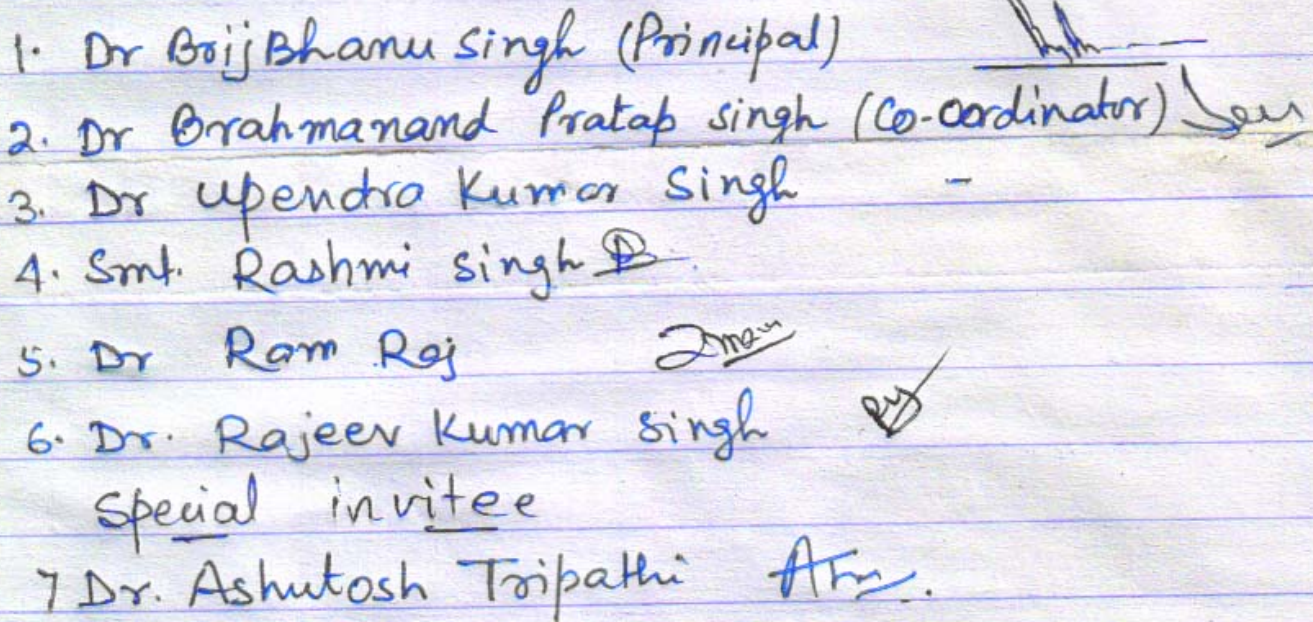 1. Dr Brij Bhanu Singh (Principal)
2. Dr Brahmanand Pratap Singh (Co-ordinator)
3. Dr Upendra Kumar Singh -
4. Smt. Rashmi Singh
5. Dr Ram Raj
6. Dr. Rajeev Kumar Singh
Special invitee
7 Dr. Ashutosh Tripathi